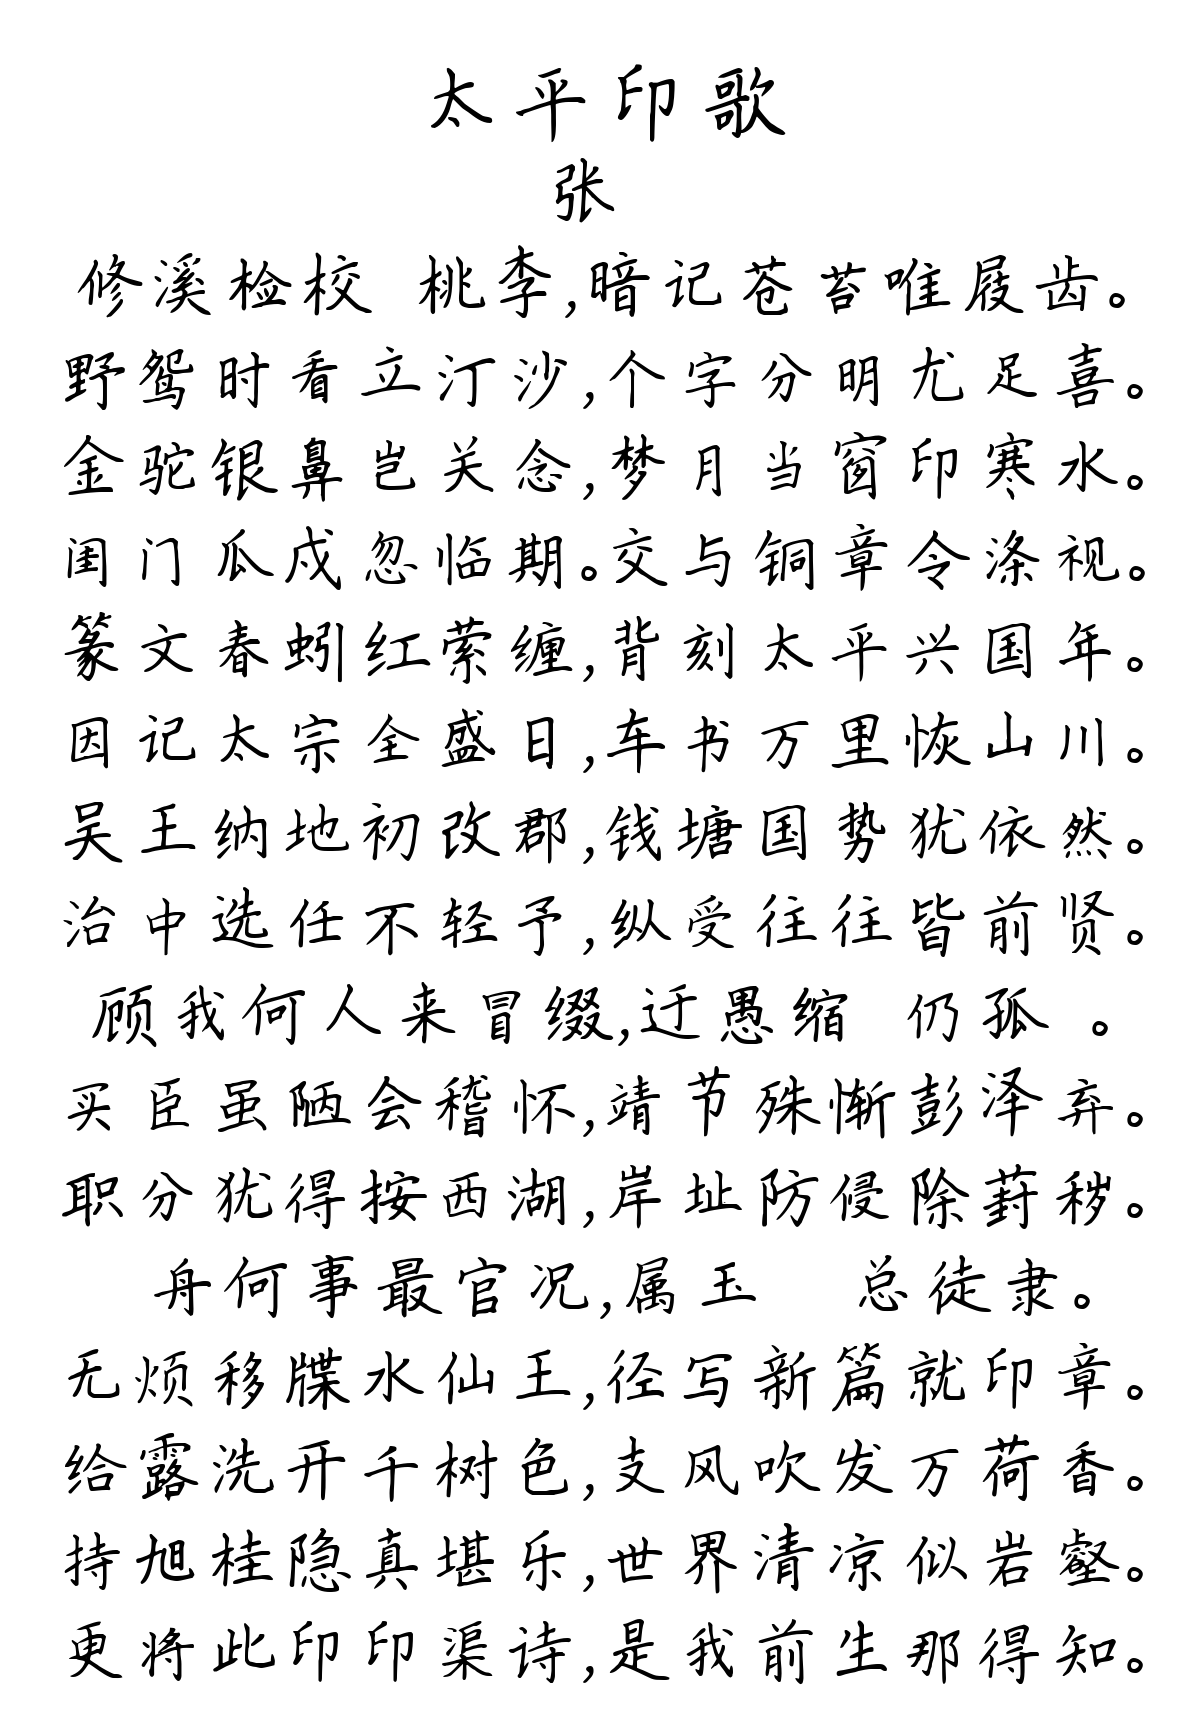 太平印歌
张
修溪检校 桃李,暗记苍苔唯屐齿。
野鸳时看立汀沙,个字分明尤足喜。
金驼银鼻岂关念,梦月当窗印寒水。
闺门瓜戍忽临期。交与铜章令涤视。
篆文春蚓红萦缠,背刻太平兴国年。
因记太宗全盛日,车书万里恢山川。
吴王纳地初改郡,钱塘国势犹依然。
治中选任不轻予,纵受往往皆前贤。
顾我何人来冒缀,迂愚缩 仍孤 。
买臣虽陋会稽怀,靖节殊惭彭泽弃。
职分犹得按西湖,岸址防侵除葑秽。
舟何事最官况,属玉 总徒隶。
无烦移牒水仙王,径写新篇就印章。
给露洗开千树色,支风吹发万荷香。
持旭桂隐真堪乐,世界清凉似岩壑。
更将此印印渠诗,是我前生那得知。